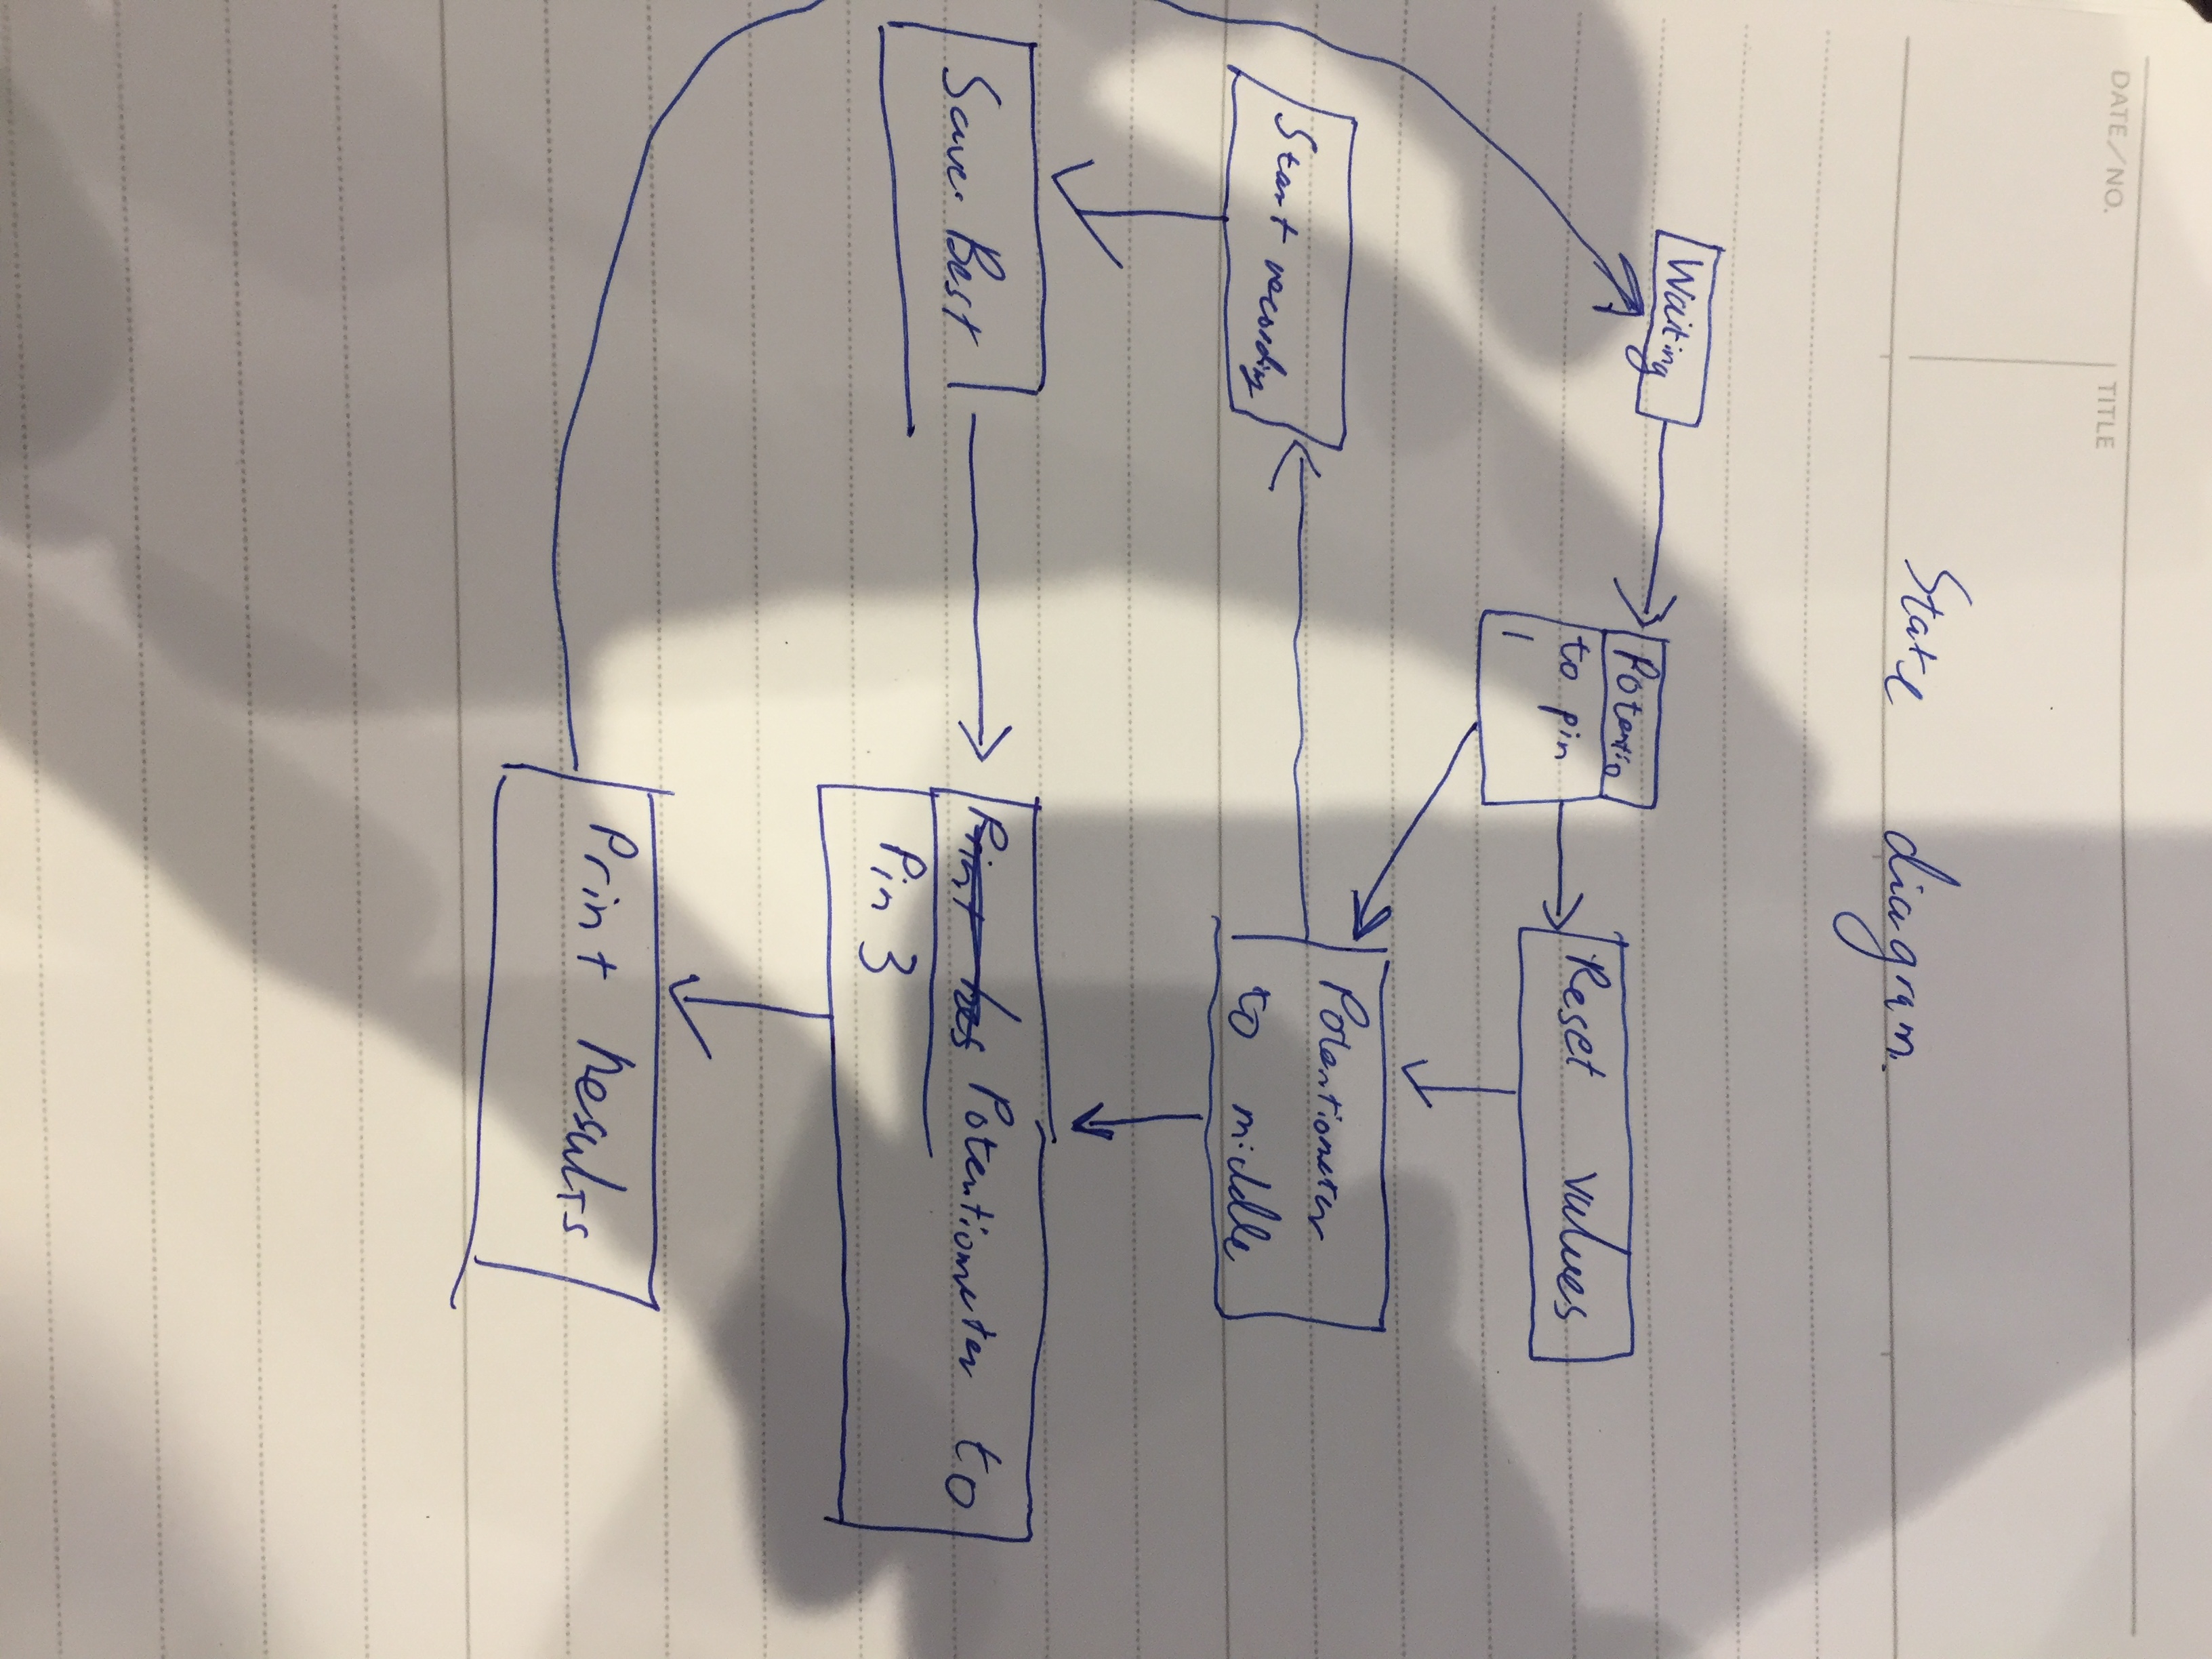 DATE/NO.
TITLE
State diagram.
Waiting
Potentio
to pin
1
Reset values
Potentiometer
to middle
Start recording
Save Best
Print Res Potentiometer to
Pin 3
Print Results